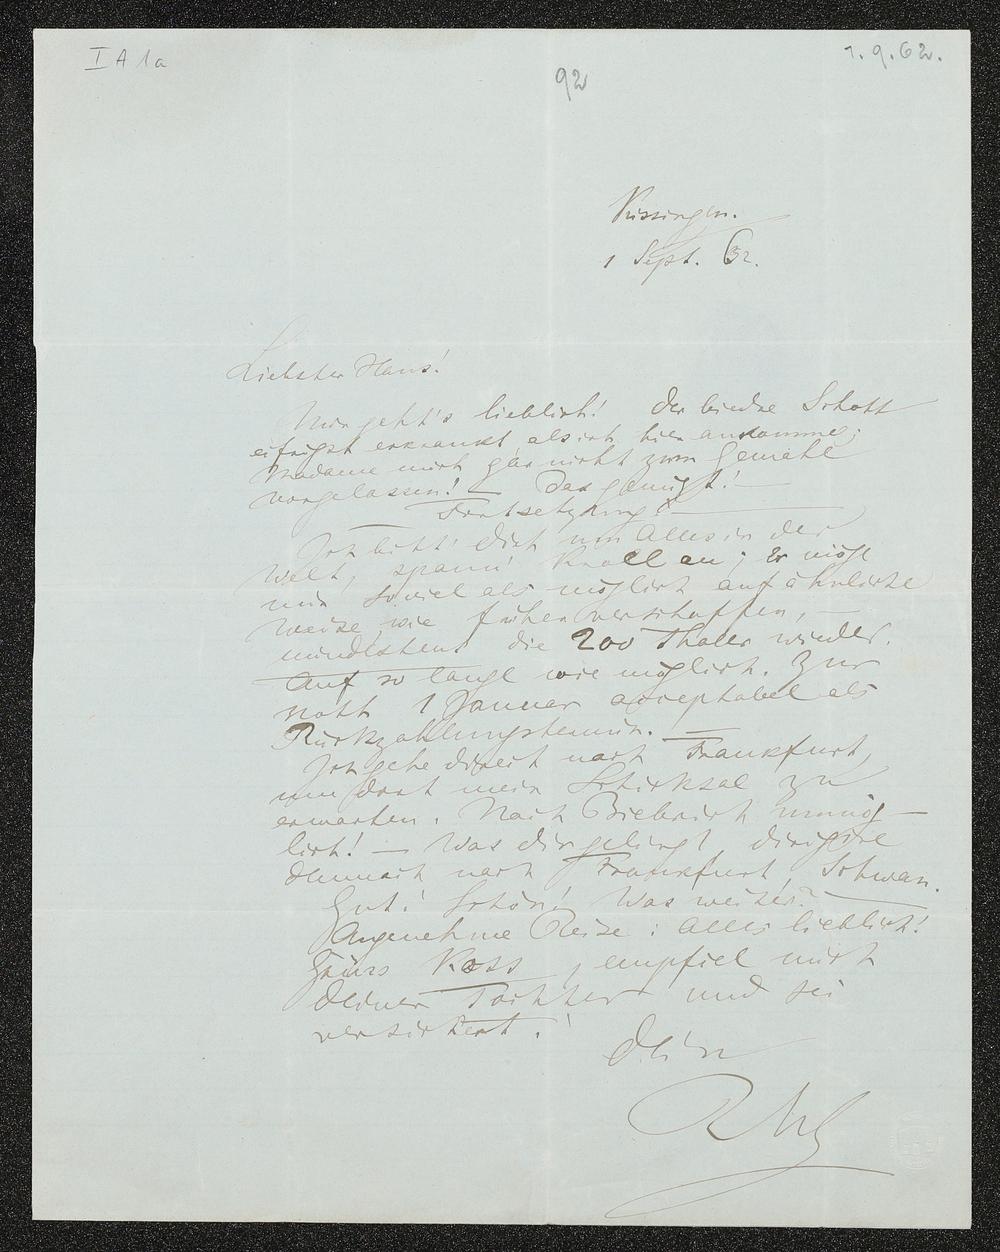 I A 1a
1.9.62.
92
Kissingen.
1 Sept. 62.
Liebster Hans!
Mir geht's lieblich! Der biedre Schott
eifrigst erkrankt als ich hier ankomme;
Madame mich gar nicht zum Gemahl
vorgelassen! — Das genügt! —
Fortsetzung? —
Ich bitt' dich um Alles in der
Welt, spann' Knoll an; Er mög'
mir soviel als möglich auf ähnliche
Weise wie früher verschaffen, —
mindestens die 200 Thaler wieder.
Auf so lange wie möglich. Zur
Noth 1 Januar acceptabel als
Rückzahlungstermin. —
Ich gehe direct nach Frankfurt,
um dort mein Schicksal zu
erwarten. Nach Biebrich unmög-
lich! — Was dir gelingt, dirigire
demnach nach Frankfurt, Schwan.
Gut! Schön! Was weiter? —
Angenehme Reise: alles lieblich!
Grüss, empfiel mich
deiner Tochter und sei
versichert!
Dein